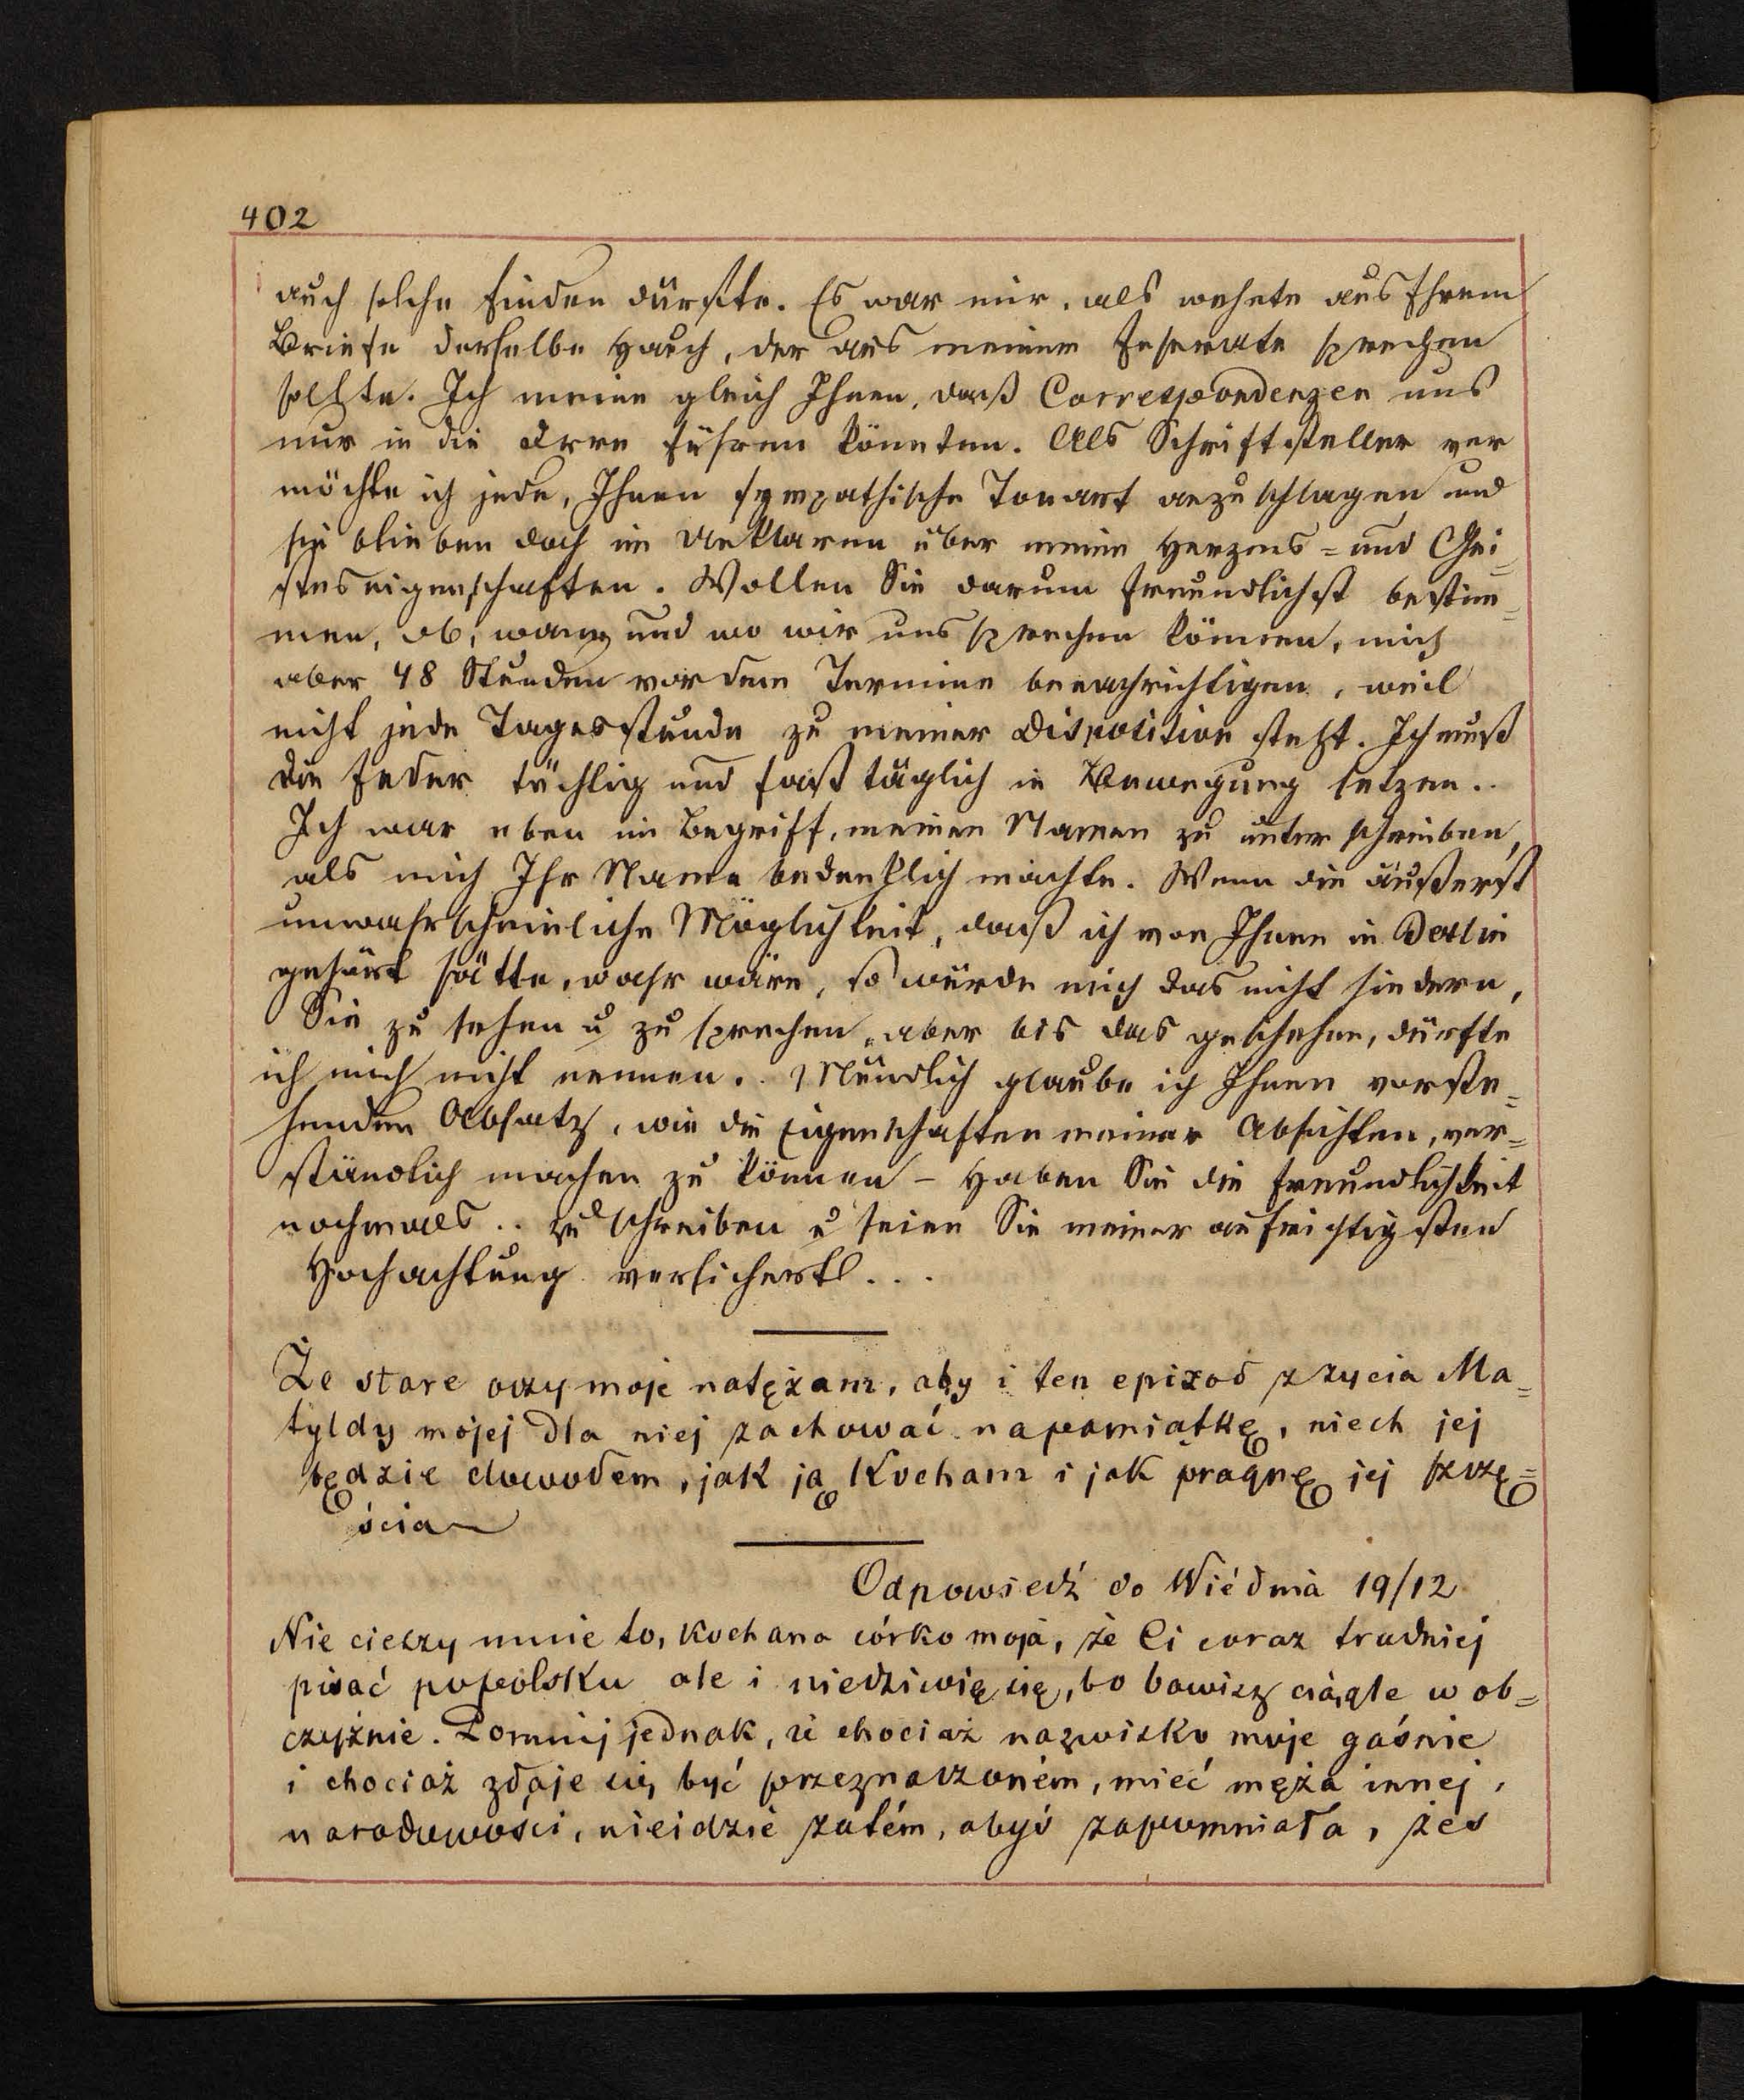 402
auch solche finden dürfte. Es war mir, als wehete aus Ihrem
Briefe derselbe Hauch, der aus meinem Inserate sprechen
sollte. Ich meine gleich Ihnen, daß Correspondenzen uns
nur in die Irre führen könnten. Als Schriftsteller ver
möchte ich jede, Ihnen sympathische Tonart anzuschlagen und
sie blieben doch im Unklaren über meine Herzens = und Gei=
steseigenschaften. Wollen Sie darum freundlichst bestim=
men, ob, wann und wo wir uns sprechen können, mich
aber 48 Stunden vor dem Termine benachrichtigen, weil
nicht jede Tagesstunde zu meiner Disposition steht. Ich muß
die Feder tüchtig und fast täglich in Bewegung setzen..
Ich war eben im Begriff, meinen Namen zu unterschreiben,
als mich Ihr Name bedenklich machte. Wenn die äußerst
unwahrscheinliche Möglichkeit, daß ich von Ihnen in Berlin
gehört hätte, wahr wäre, so würde mich das nicht hindern,
Sie zu sehen u zu sprechen, aber bis das geschehen, dürfte
ich mich nicht nennen.. Mündlich glaube ich Ihnen vorste=
henden Absatz, wie die Eigenschaften meiner Absichten, ver=
ständlich machen zu können – Haben Sie die Freundlichkeit
nochmals.. zu schreiben u seien Sie meiner aufrichtigsten
Hochachtung versichert...
Że stare oczy moje natężam, aby i ten epizod z życia Ma=
tyldy mojej dla niej zachować na pamiątkę, niech jej
będzie dowodem, jak ją kocham i jak pragnę jej szczę=
ścia
Odpowiedź do Wiédnia 19/12
Nie cieszy mnie to, kochana córko moja, że Ci coraz trudniej
pisać popolsku ale i niedziwię się, bo bawisz ciągle w ob=
czyźnie. Pomnij jednak, że chociaż nazwisko moje gaśnie
i chociaż zdaje się być przeznaczoném, mieć męża innej,
narodowości, nieidzie zatém, abyś zapomniała, żeś